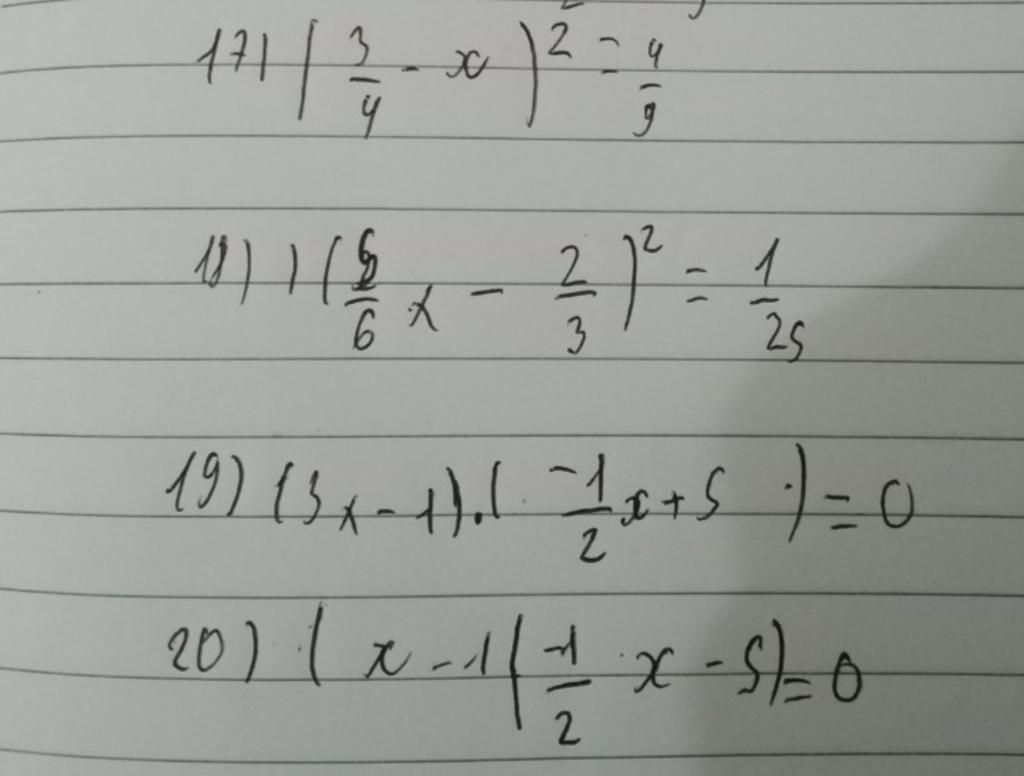 17) ( 3/4 - x )² = 4/9
18) ) ( 5/6 x - 2/3 )² = 1/25
19) (3x - 1).( -1/2 x + 5 ) = 0
20) ( x - 1 ( -1/2 . x - 5) = 0